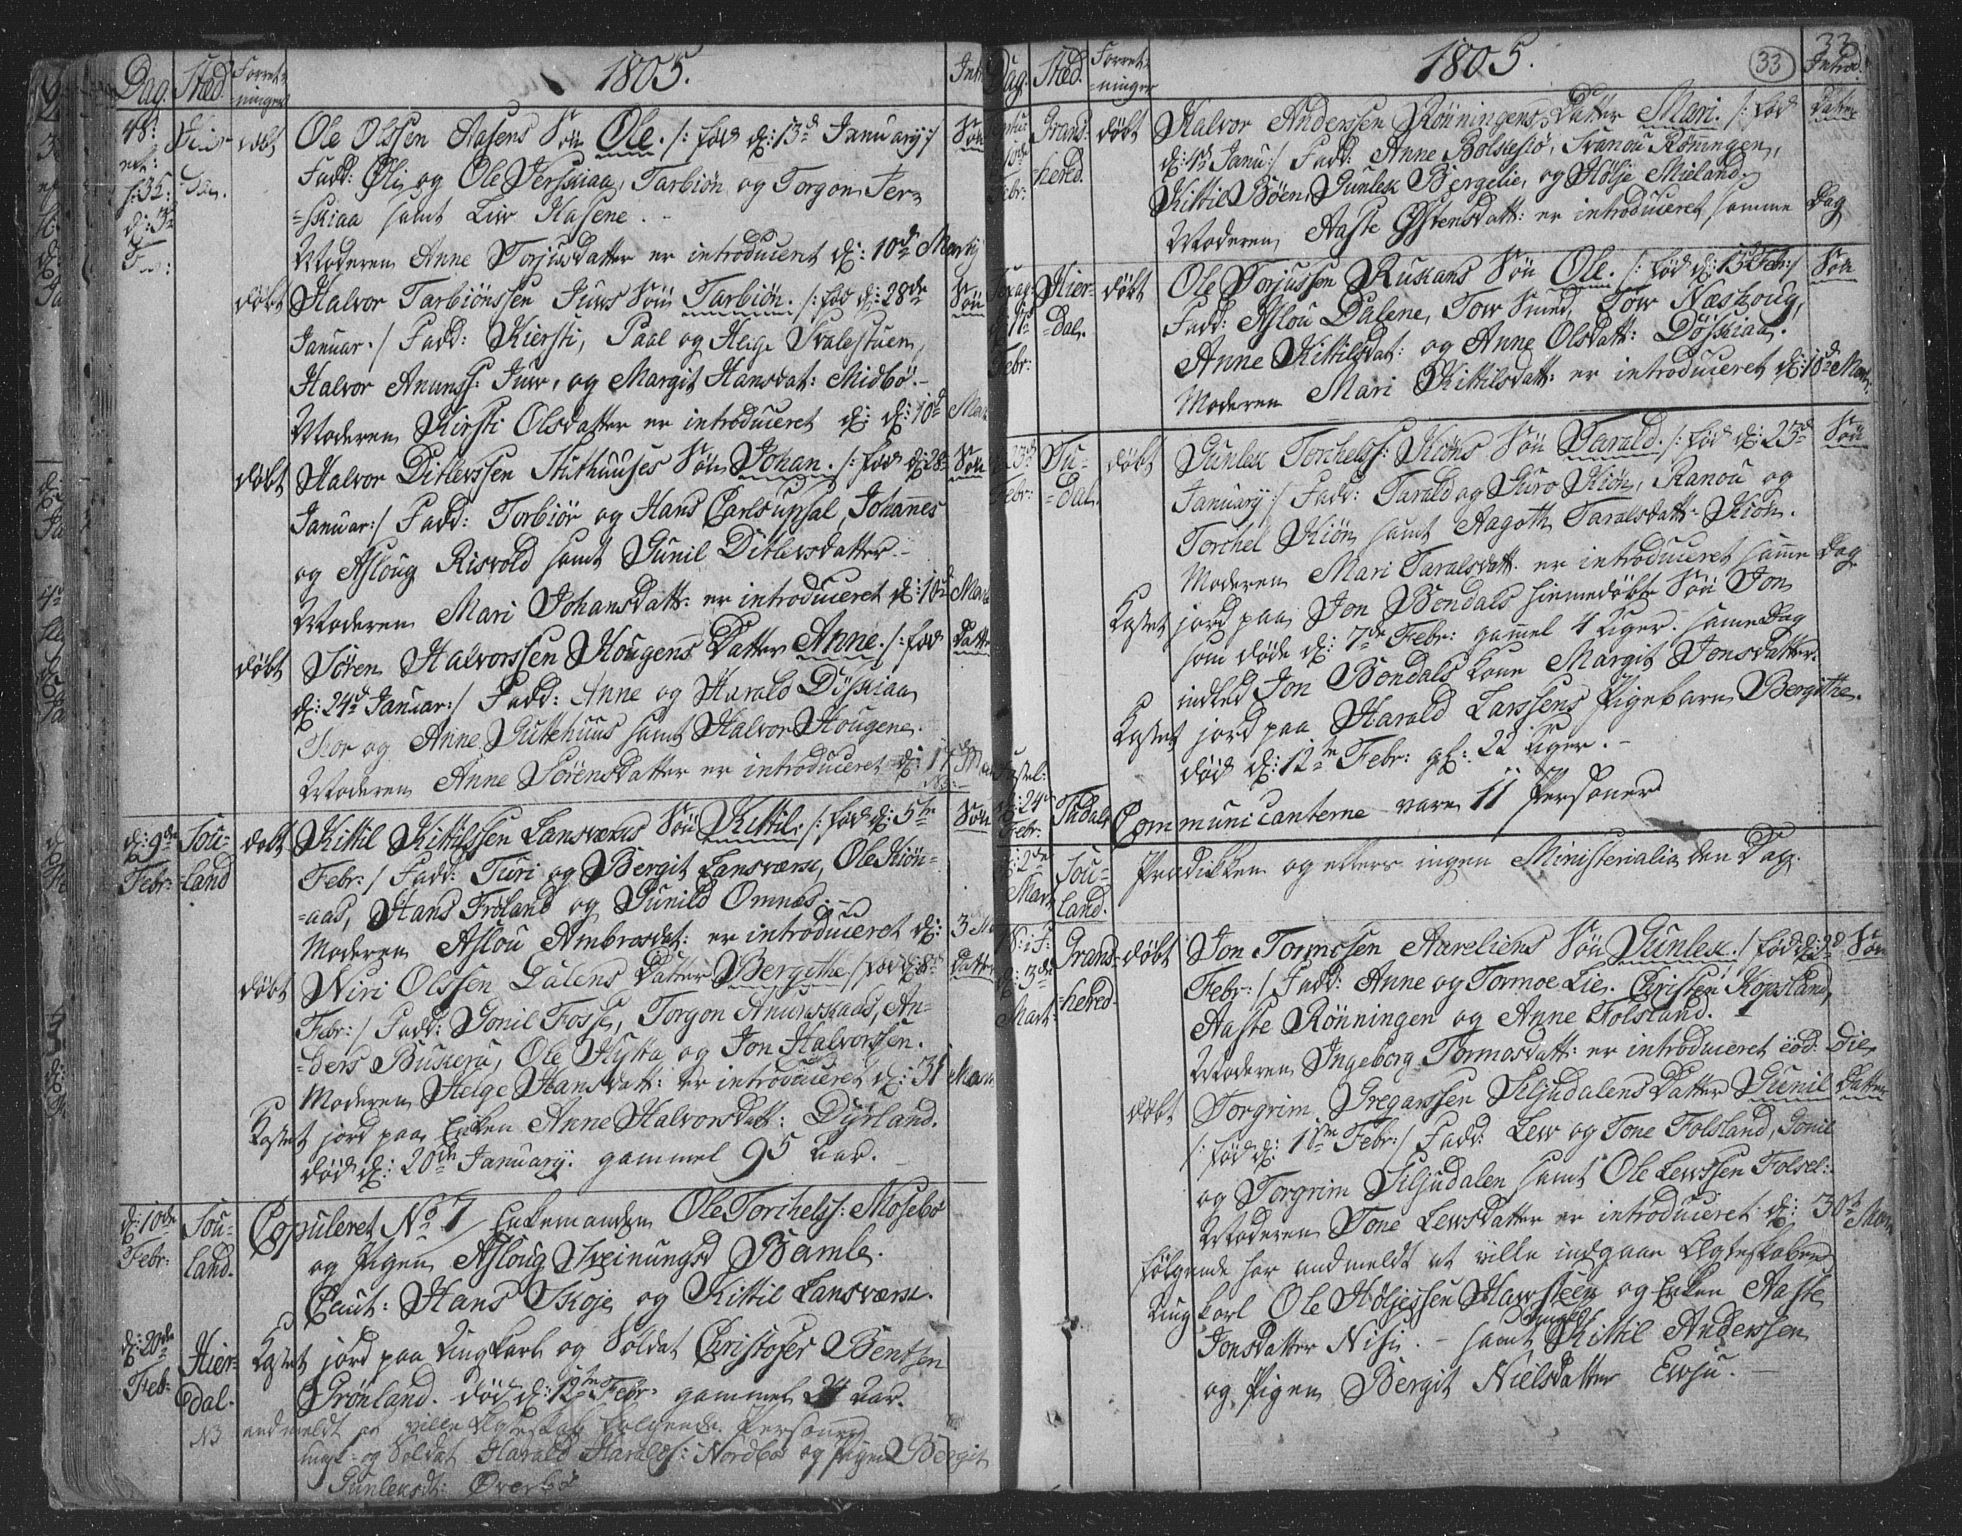 Dag. Sted. Forret-
-ninger
1805.
døbt Ole Olssen Aasens Søn Ole. /: fød d: 13d January :/ Søn
Fadd: Øli og Ole Jerskiaa, Tarbiøn og Torgon Jer-
=skiaa samt Liw Aasene.
Moderen Anne Torjusdatter er introduceret d: 10de Martj
døbt Halvor Tarbiönssen Juws Søn Tarbiön. /: fød d: 28de Søn
Januar. :/ Fadd: Kiersti, Paal og Helge Svalestuen,
Halvor Anunss: Juw, og Margit Hansdat: Midbø.
Moderen Kirsti Olsdatter er introduceret d: 10d Mar
døbt Halvor Ditlevssen Stithuuses Søn Johan. /: fød d: 28 Søn
Januar :/ Fadd: Torbiør og Hans Carlsupsal, Johannes
og Asloug Risvold samt Gunil Ditlevsdatter.
Moderen Mari Johansdatt: er introduceret d: 10d Mar
døbt Søren Halvorssen Hougens Datter Anne. /: fød Datter
d: 24d Januar :/ Fadd: Anne og Harald Döskiaa
Thor og Anne Gutehuus samt Halvor Hougene.
Moderen Anne Sørensdatter er introduceret d: 17d Mar
d: 9de Sou- døbt Kittil Kittilssen Lansværks Søn Kittil. /: fød d: 5te Søn
Febr: land Febr: / Fadd: Turi og Bergit Lansværk, Ole Kiön-
=aas, Hans Fröland og Gunild Omnæs.
Moderen Aslou Ambrosdat: er introduceret d: 3
døbt Niri Olssen Dalens Datter Bergithe /: fød d: 8d Datter
Febr: / Fadd: Gonil Fosse, Torgon Anunskaas, An-
=ders Buskeru, Ole Hytta og Jon Halvorssen.
Moderen Helge Hansdatt: er introduceret d: 31 Mar
Kastet jord paa Enken Anne Halvorsdatt: Dyrland.
død d: 20de January. gammel 95 Aar.
d: 10de Sou- Copuleret No 7 / Enkemanden Ole Torchelss: Mosebø
Febr: land. og Pigen Asloug Sveinungsd Bamle.
Caut: Hans Skoje og Kittil Lansværk.
d: 20de Hier- Kastet jord paa Ungkarl og Soldat Christofer Bentsen
Feb: dal. Grönland. død d: 12te Febr: gammel 24 Aar.
NB anmeldt at ville Ægteskab følgende Personer
Ungk- og Soldat Harald Haralss: Nordbø og Pigen Bergit
Gunleksdt: Øverbø
Dag. Sted. Forret-
-ninger
1805.
33
33
Introd:
Grans- døbt Halvor Anderssen Rönningens Datter Mari. /: fød Datter
hered. d: 4d Janu: / Fadd: Anne Bolkesiö, Svanou Röningen,
Febr: Kittil Böen, Gunlek Bergelie, og Hölje Mieland.
Moderen Aaste Östensdatt: er introduceret samme Dag
Hier- døbt Ole Torjussen Ruskans Søn Ole. /: fød d: 13de Feb: / Søn
=dal. Fadd: Aslou Dalene, Tow Smed, Tow Næshoug,
Febr: Anne Kittilsdat: og Anne Olsdatt: Döskiaa.
Moderen Mari Kittilsdatt: er introduceret d: 18d Mart
23d Tu- døbt Gunlek Torchelss: Kiöns Søn Tarald. /: fød d: 23d Søn
Febr: =dal. January :/ Fadd: Tarald og Guro Kiön, Ranou og
Torchel Kiön samt Aagoth Taralsdatt: Kiön.
Moderen Mari Taralsdatt: er introduceret samme Dag
Kastet jord paa Jon Bondals hiemmedøbte Søn Jon
som døde d: 7de Febr: gammel 4 Uger. samme Dag
indled Jon Bondals Kone Margit Jonsdatter.
Kastet jord paa Harald Larssens Pigebarn Bergithe.
død d: 12te Febr: gl: 22 Uger.
d: 24 Tudal. Communicanterne vare 11 Personer
Febr:
d: 2de Sou- Prædikken og ellers ingen Ministerialia den Dag.
Mart land.
Grans- døbt Jon Tormosen Aarliens Søn Gunlek. / fød d: 2d Søn
d: 3de =hered Febr: / Fadd: Anne og Tormoe Lie. Christen Kopsland,
Mart: Aaste Rönningen og Anne Folsland.
Moderen Ingeborg Tormosdatt: er introduceret eod: Die
døbt Torgrim Gregarssen Siljudalens Datter Gunil Datter
/: fød d: 18te Febr: / Fadd: Lew og Tone Folsland, Gonil
og Torgrim Siljudalen samt Ole Lewssen Folsel:
Moderen Tone Lewsdatter er introduceret d: 30te Mar
følgende har anmeldt at ville indgaae Ægteskaben
Ungkarl Ole Höljessen Hawsteen og Enken Aaste
Jonsdatter Nisi. - samt Kittil Anderssen
og Pigen Bergit Nielsdatter Ewju.